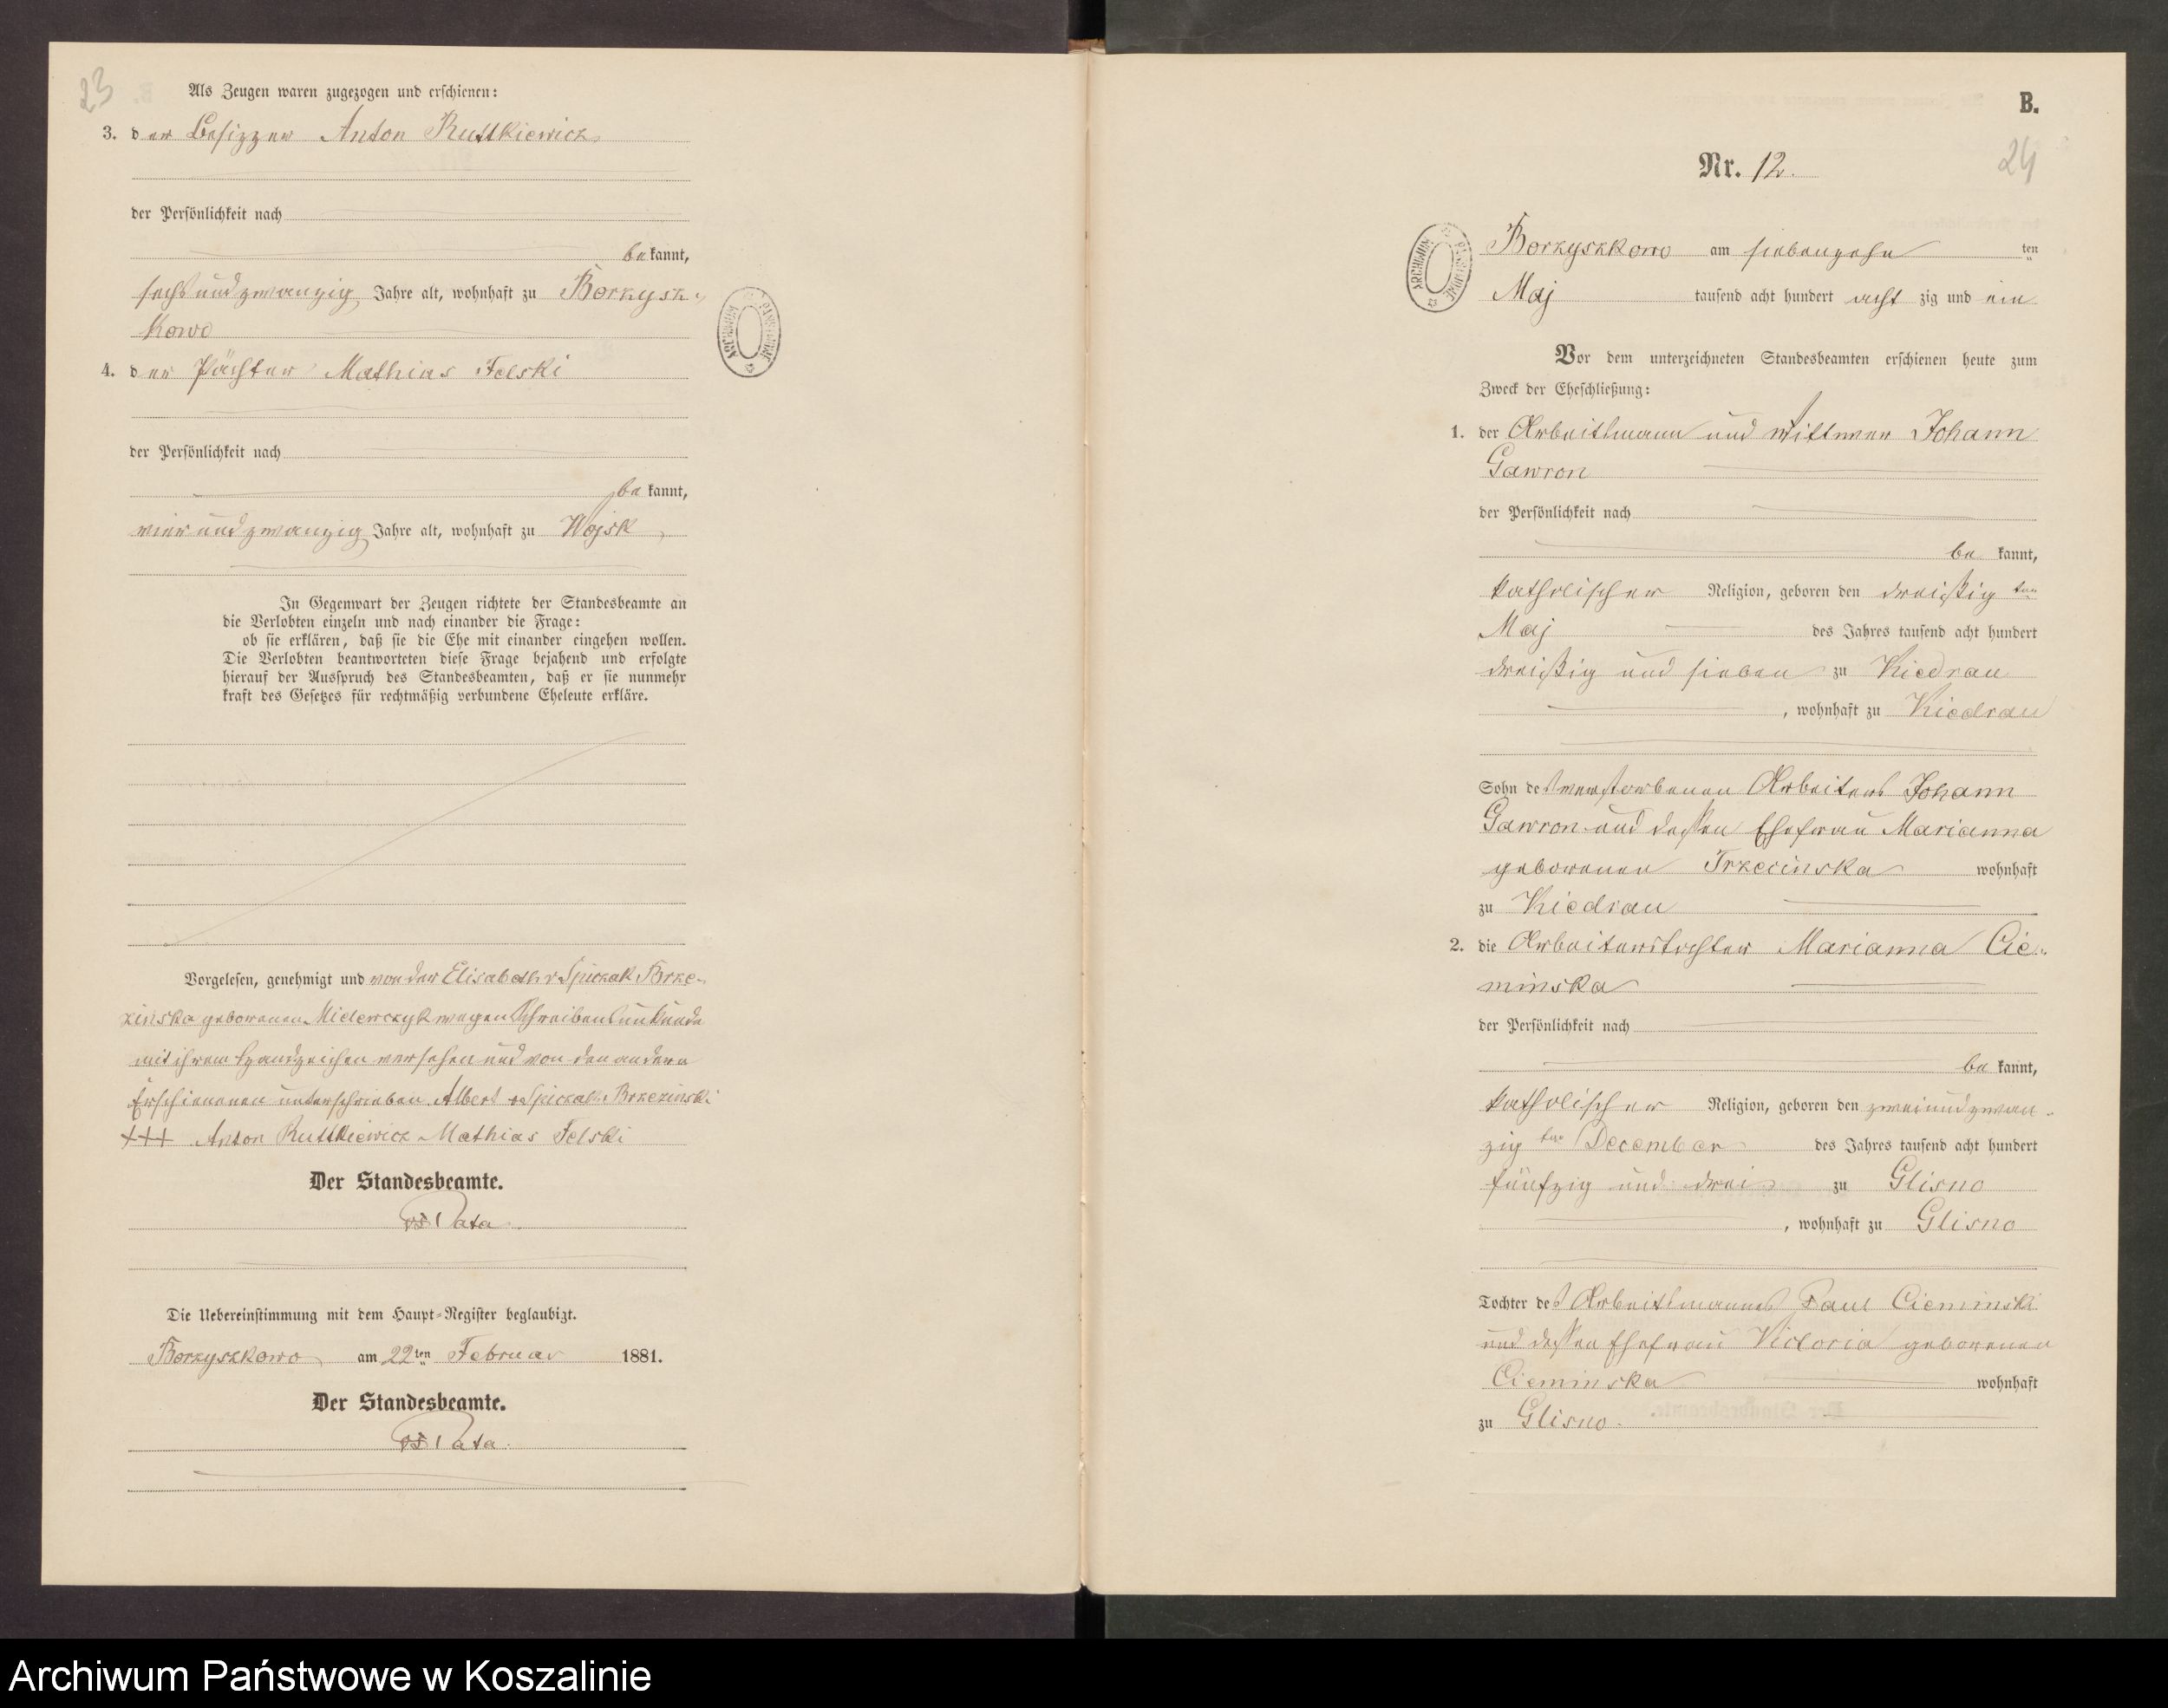 23
Als Zeugen waren zugezogen und erschienen:
3. der Besizzer Anton Ruttkiewicz
der Persönlichkeit nach
bekannt,
sechs und zwanzig Jahre alt, wohnhaft zu Borzysz-
kowo
4. der Pächter Mathias Felski
der Persönlichkeit nach
be kannt,
vier und zwanzig Jahre alt, wohnhaft zu Wojsk
In Gegenwart der Zeugen richtete der Standesbeamte an
die Verlobten einzeln und nach einander die Frage:
ob sie erklären, daß sie die Ehe mit einander eingehen wollen.
Die Verlobten beantworteten diese Frage bejahend und erfolgte
hierauf der Ausspruch des Standesbeamten, daß er sie nunmehr
kraft des Gesetzes für rechtmäßig verbundene Eheleute erkläre.
Vorgelesen, genehmigt und von der Elisabeth v Spiczak Brze-
zinska geborenen wegen Schreibensunkunde
mit ihrem Handzeichen versehen und von den andern
Erschienenen unterschrieben Albert v Spiczak Brzezinski
+++ Anton Ruttkiewicz Mathias Felski
Der Standesbeamte.
Pata.
Die Uebereinstimmung mit dem Haupt-Register beglaubigt.
Borzyszkowo am 22ten Februar 1881.
Der Standesbeamte.
Pata.
ARCHIWUM PAŃSTWOWE
B.
24
Nr. 12.
ARCHIWUM PAŃSTWOWE
Borzyszkowo am siebenzehn ten
Maj tausend acht hundert acht zig und ein
Vor dem unterzeichneten Standesbeamten erschienen heute zum
Zweck der Eheschließung:
1. der Arbeitsmann und Wittwer Johann
Gawron
der Persönlichkeit nach
be kannt,
katholischer Religion, geboren den dreißig ten
Maj des Jahres tausend acht hundert
dreißig und sieben zu Kiedrau
, wohnhaft zu Kiedrau
Sohn des verstorbenen Arbeiters Johann
Gawron und dessen Ehefrau Marianna
geborenen Trzecinska wohnhaft
zu Kiedrau
2. die Arbeiterstochter Marianna Cie-
minska
der Persönlichkeit nach
be kannt,
katholischer Religion, geboren den zwei und zwan-
zig ten December des Jahres tausend acht hundert
fünfzig und drei zu Glisno
, wohnhaft zu Glisno
Tochter des Arbeitsmannes Paul Cieminski
und dessen Ehefrau Victoria geborenen
Cieminska wohnhaft
zu Glisno.
Archiwum Państwowe w Koszalinie